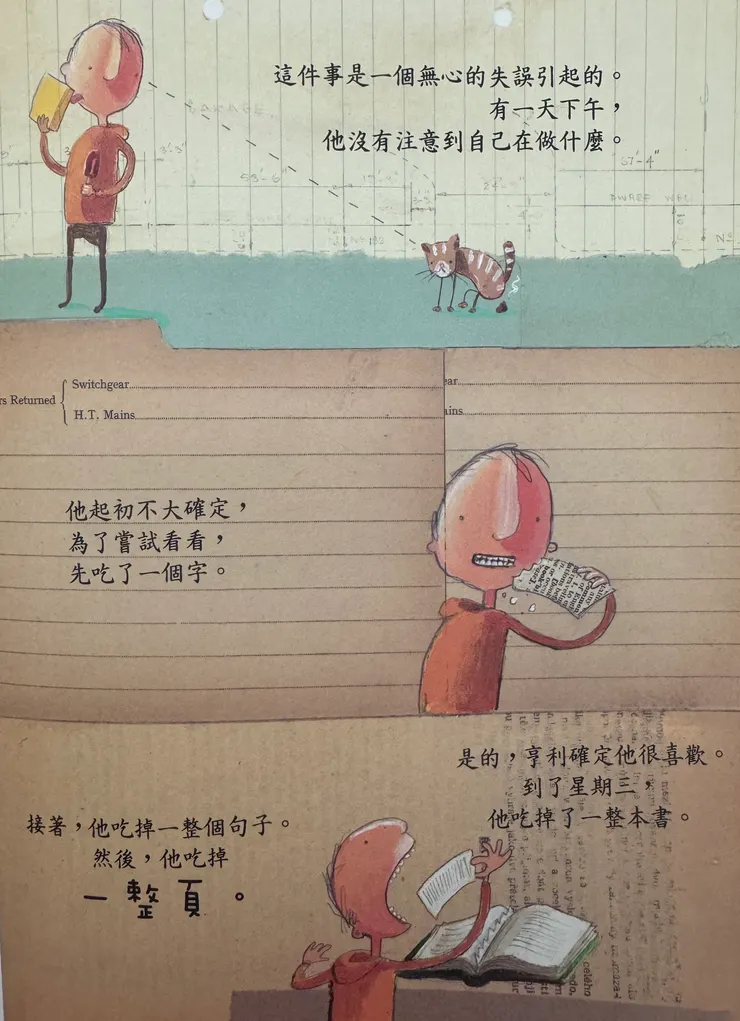 這件事是一個無心的失誤引起的。
有一天下午,
他沒有注意到自己在做什麼。
67'-4"
rs Returned
Switchgear
H.T. Mains
ar
ains
他起初不大確定,
為了嘗試看看,
先吃了一個字。
是的,亨利確定他很喜歡。
到了星期三,
他吃掉了一整本書。
接著,他吃掉一整個句子。
然後,他吃掉
一整頁。